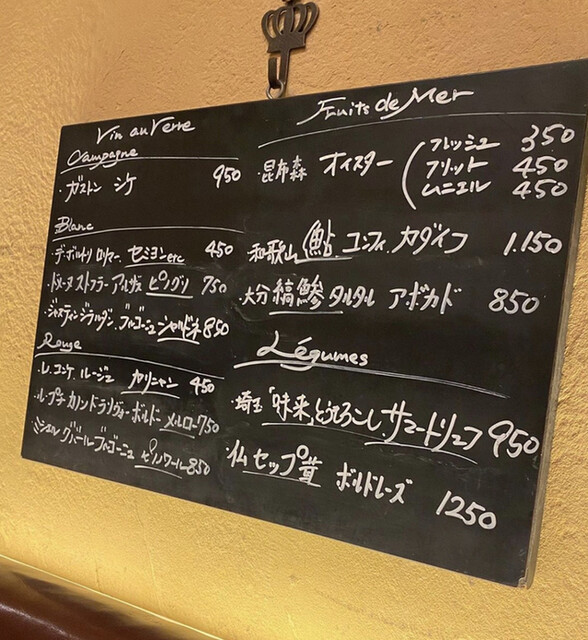 Vin au Verre
Campagne
・ガストン シケ 950
Blanc
デ・ボルトリ ロリマー セミヨンetc 450
ドメーヌ ストフラー アルザス ピノグリ 750
・ジャスティン ジラルダン ブルゴーニュ シャルドネ 850
Rouge
・レ.コンケ.ルージュ カリニャン 450
・ル・プチ カノン ドランヴォー ボルドー メルロー 750
ミシェル グバール ブルゴーニュ ピノノワール 850
Fruits de Mer
・昆布森 オイスター フレッシュ 350
フリット 450
ムニエル 450
和歌山 鮎 コンフィ カダイフ 1.150
・大分 縞鯵 タルタル アボカド 850
Légumes
・埼玉「味来」とうもろこし サマートリュフ 950
・仏 セップ茸 ボルドレーズ 1250